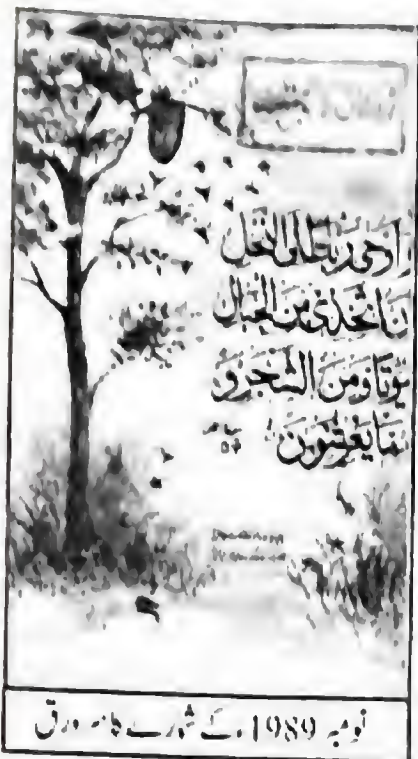 وأوحى ربك إلى النحل
أن اتخذي من الجبال
بيوتا ومن الشجر و
مما يعرشون
نومبر 1989ء کے شمارے کا سرورق